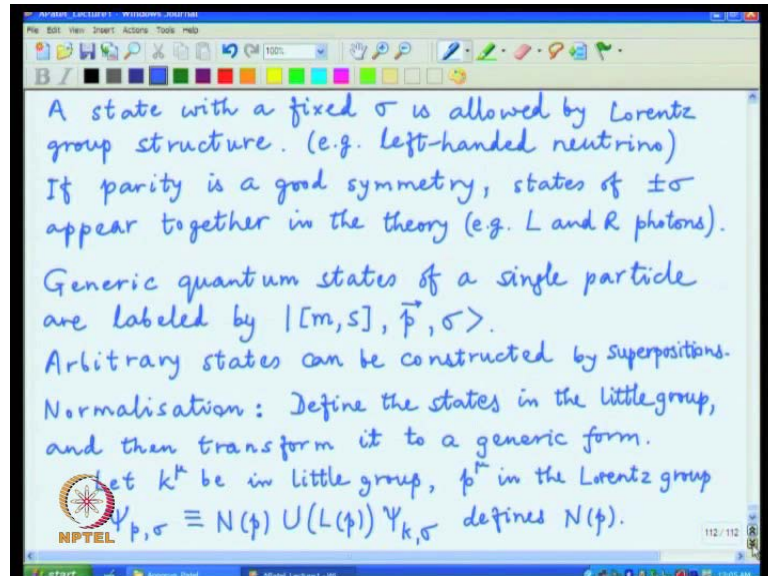 APatel_Lecture1 - Windows Journal
File Edit View Insert Actions Tools Help
100%
B I
A state with a fixed σ is allowed by Lorentz
group structure. (e.g. left-handed neutrino)
If parity is a good symmetry, states of ±σ
appear together in the theory (e.g. L and R photons).
Generic quantum states of a single particle
are labeled by |[m,s], p⃗, σ>.
Arbitrary states can be constructed by superpositions.
Normalisation: Define the states in the little group,
and then transform it to a generic form.
Let k^μ be in little group, p^μ in the Lorentz group
Ψ_{p,σ} ≡ N(p) U(L(p)) Ψ_{k,σ} defines N(p).
NPTEL
112/112
start